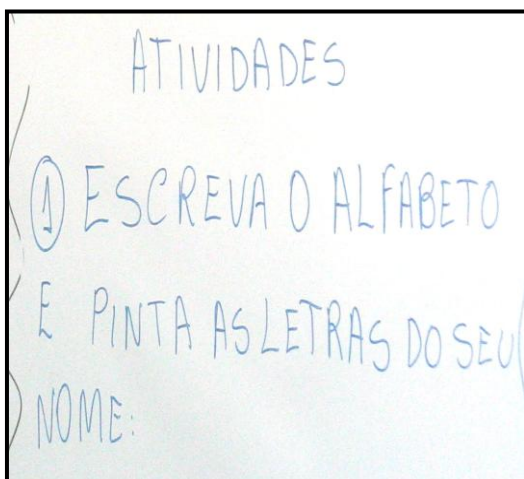 ATIVIDADES
① ESCREVA O ALFABETO
E PINTA AS LETRAS DO SEU
NOME: